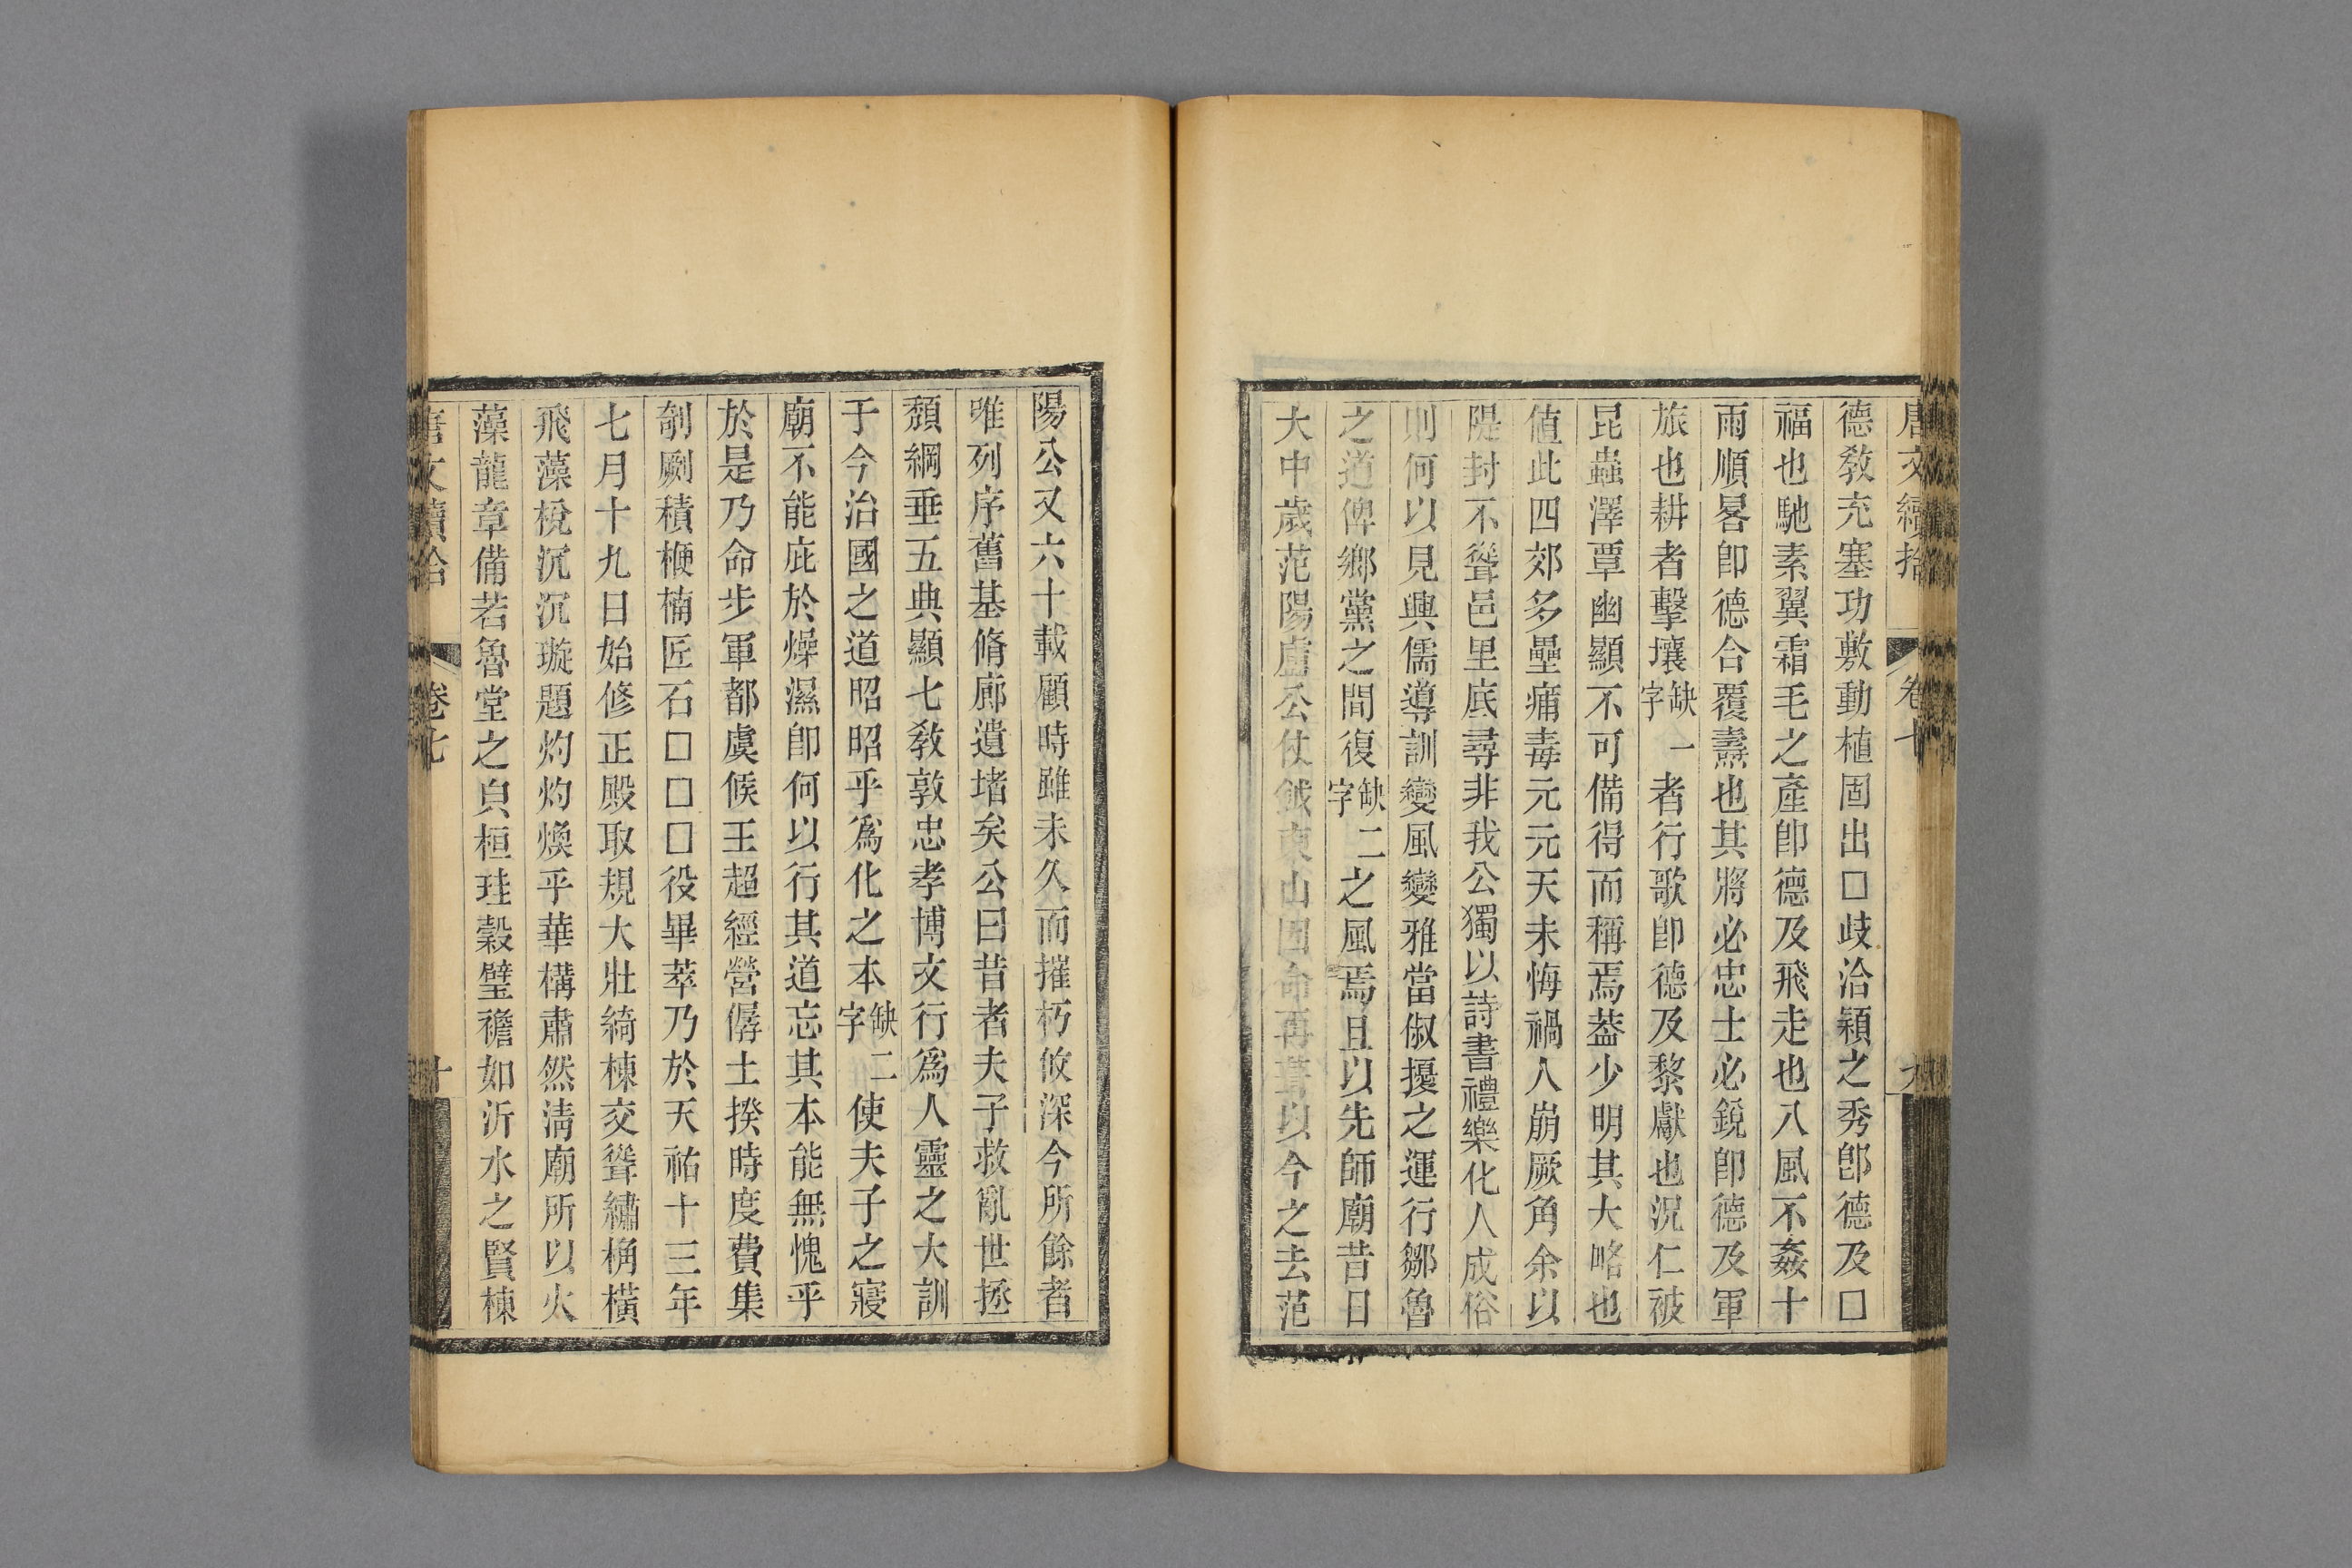 唐文續拾 卷七 九
德教充塞功敷動植固出□歧洽穎之秀卽德及□
福也馳素翼霜毛之產卽德及飛走也八風不姦十
雨順晷卽德合覆燾也其將必忠士必銳卽德及軍
旅也耕者擊壤缺一字者行歌卽德及黎獻也況仁被
昆蟲澤覃幽顯不可備得而稱焉葢少明其大略也
値此四郊多壘痡毒元元天未悔禍人崩厥角余以
隄封不聳邑里底尋非我公獨以詩書禮樂化人成俗
則何以見興儒導訓變風變雅當俶擾之運行鄒魯
之道俾鄉黨之間復缺二字之風焉且以先師廟昔日
大中歲范陽盧公仗鉞東山因命再葺以今之去范
陽公又六十載顧時雖未久而摧朽攸深今所餘者
唯列序舊基脩廊遺堵矣公曰昔者夫子救亂世拯
頹綱垂五典顯七敎敦忠孝博文行爲人靈之大訓
于今治國之道昭昭乎爲化之本缺二字使夫子之寢
廟不能庇於燥濕卽何以行其道忘其本能無愧乎
於是乃命步軍都虞候王超經營僝土揆時度費集
剞劂積楩楠匠石□□□役畢萃乃於天祐十三年
七月十九日始修正殿取規大壯綺棟交聳繡桷橫
飛藻梲沉沉璇題灼灼煥乎華構肅然淸廟所以火
藻龍章備若魯堂之㒵桓珪穀璧襜如沂水之賢棟
唐文續拾 卷七 十